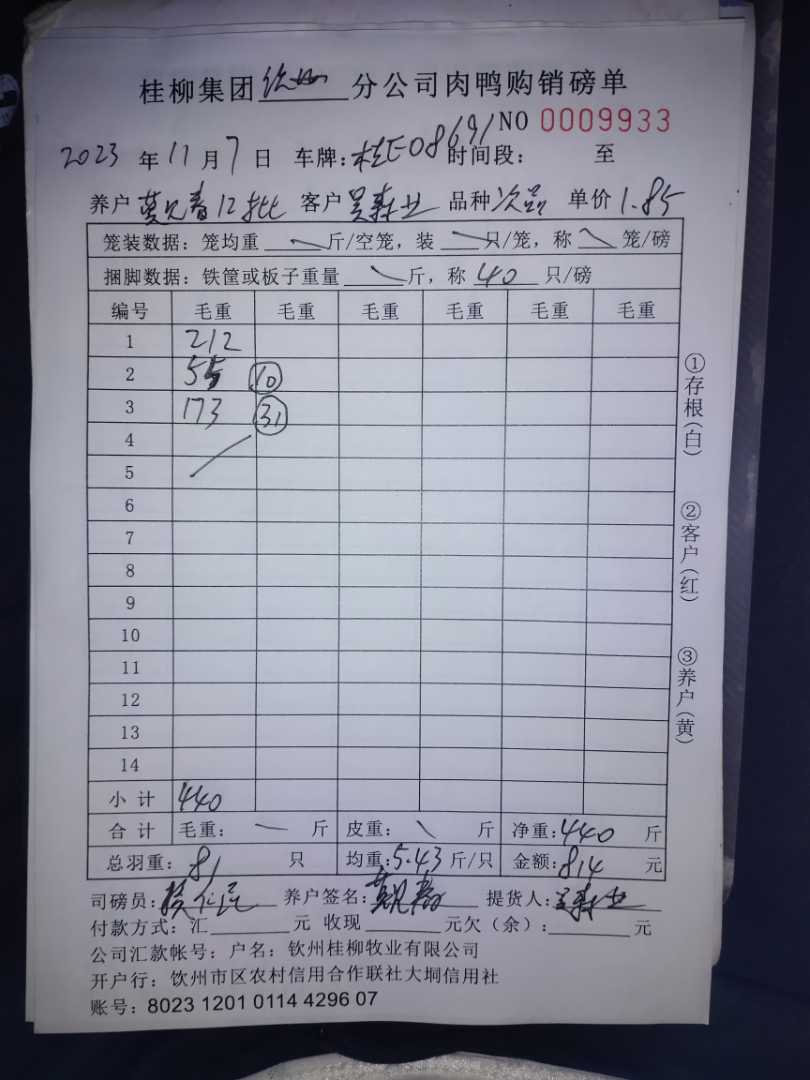 桂柳集团钦州分公司肉鸭购销磅单
NO 0009933
2023年11月7日 车牌:桂E08691 时间段: 至
养户 黄兄春12批 客户 吴森业 品种 次品 单价 1.85
笼装数据:笼均重 斤/空笼,装 只/笼,称 笼/磅
捆脚数据:铁筐或板子重量 斤,称 40 只/磅
编号 毛重 毛重 毛重 毛重 毛重 毛重
1 212
2 55 10
3 173 31
4
5
6
7
8
9
10
11
12
13
14
小计 440
合计 毛重: 斤 皮重: 斤 净重:440 斤
总羽重: 81 只 均重:5.43 斤/只 金额:814 元
司磅员: 养户签名: 提货人:吴森业
付款方式:汇 元 收现 元欠(余): 元
公司汇款帐号:户名:钦州桂柳牧业有限公司
开户行:钦州市区农村信用合作联社大垌信用社
账号:8023 1201 0114 4296 07
①存根(白)
②客户(红)
③养户(黄)